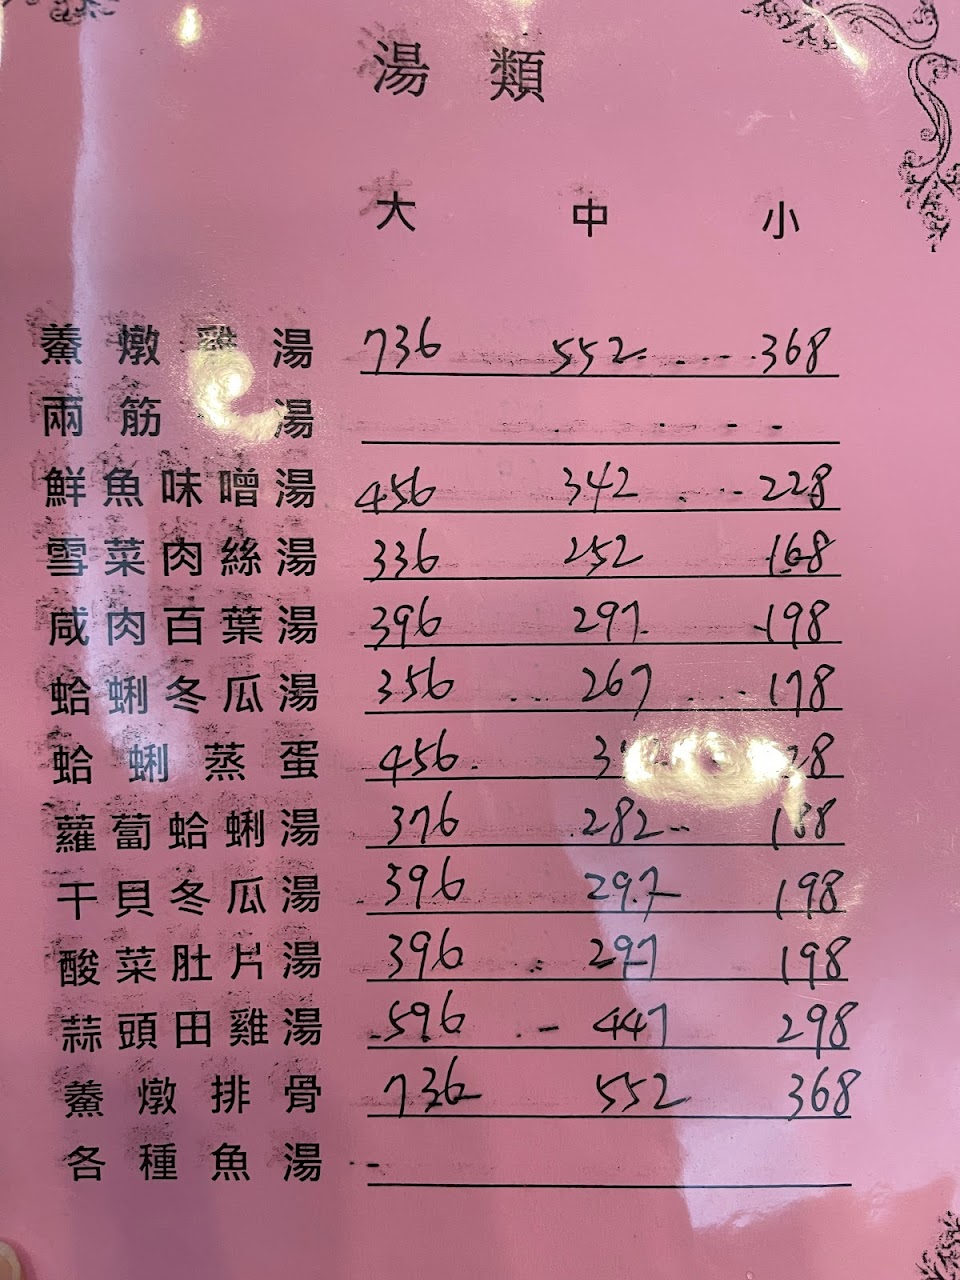 湯類
大 中 小
鯗燉雞湯 736 552 368
兩筋 湯
鮮魚味噌湯 456 342 228
雪菜肉絲湯 336 252 168
咸肉百葉湯 396 297 198
蛤蜊冬瓜湯 356 267 178
蛤蜊蒸蛋 456
蘿蔔蛤蜊湯 376 282 188
干貝冬瓜湯 396 297 198
酸菜肚片湯 396 297 198
蒜頭田雞湯 596 447 298
鯗燉排骨 736 552 368
各種魚湯